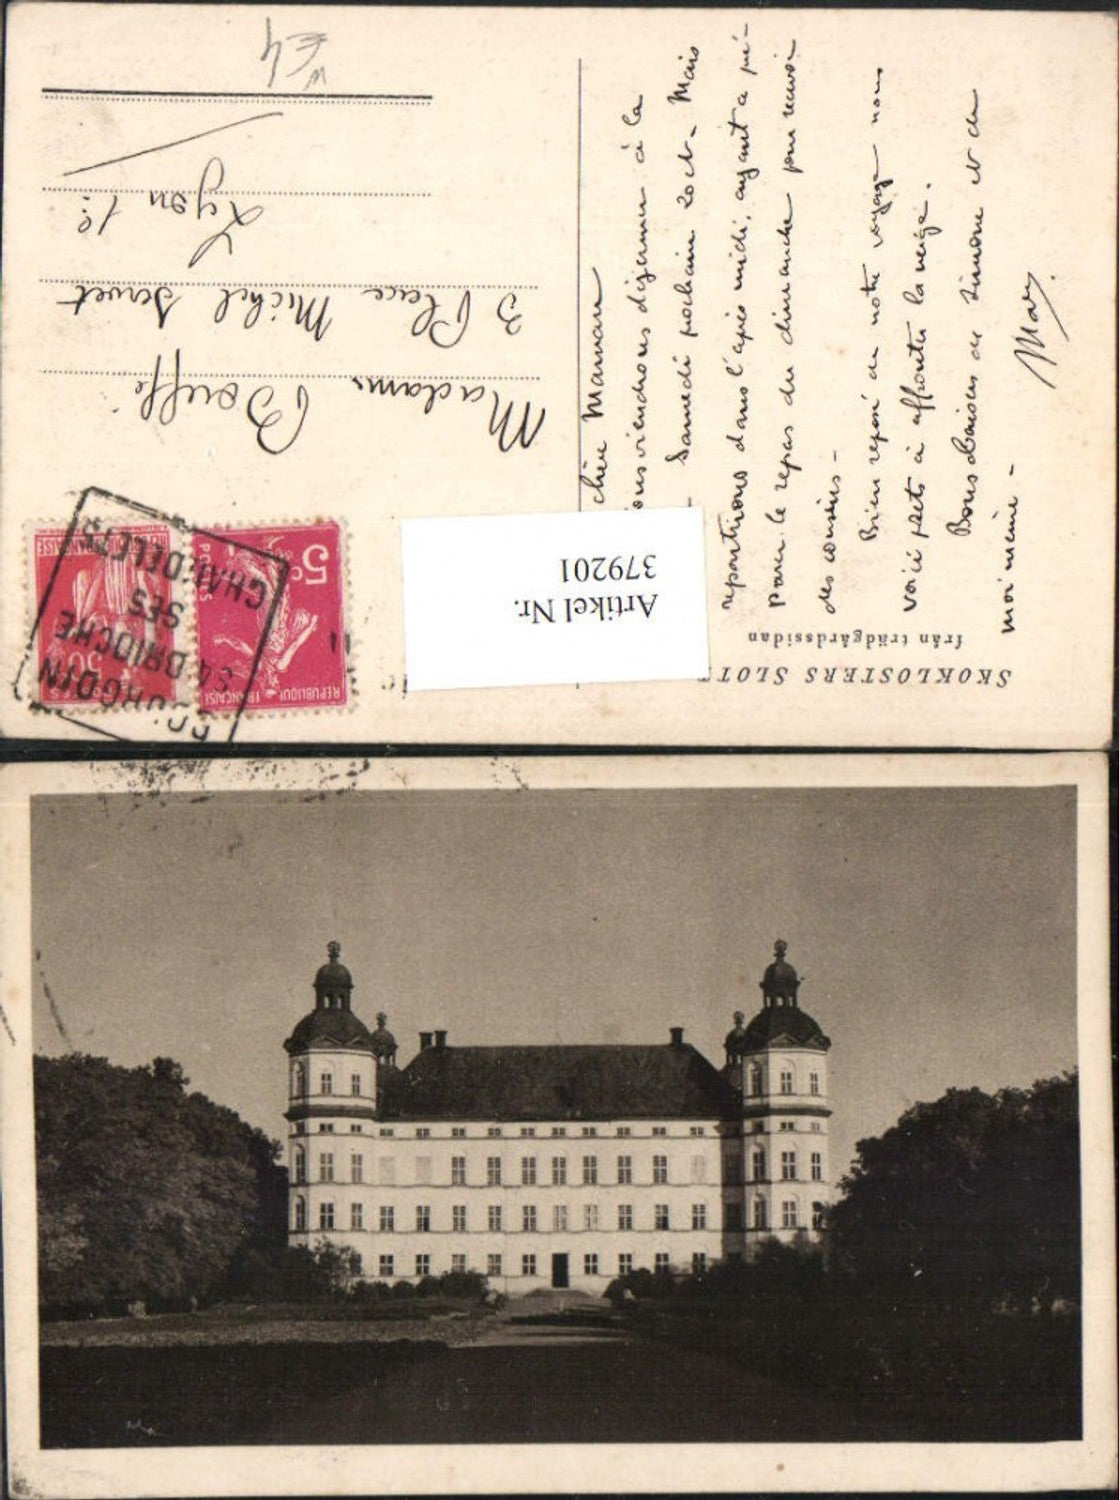 SKOKLOSTERS SLOTT
från trädgårdssidan
Artikel Nr.
379201
chère Maman
viendrons déjeuner à la
Samedi prochain 20 ct - Mais
repartirons dans l'après midi, ayant à pré-
parer le repas du dimanche pour recevoir
des cousins -
Bien reposé de notre voyage nous
voici prêts à affronter la neige.
Bons baisers de Simone et de
moi même -
Madame
Bouffé
3 Place Michel Servet
Lyon 1er
REPUBLIQUE
FRANÇAISE
5c
POSTES
50
BOURGOIN
SA BRIOCHE
SES
CHAUDELETS